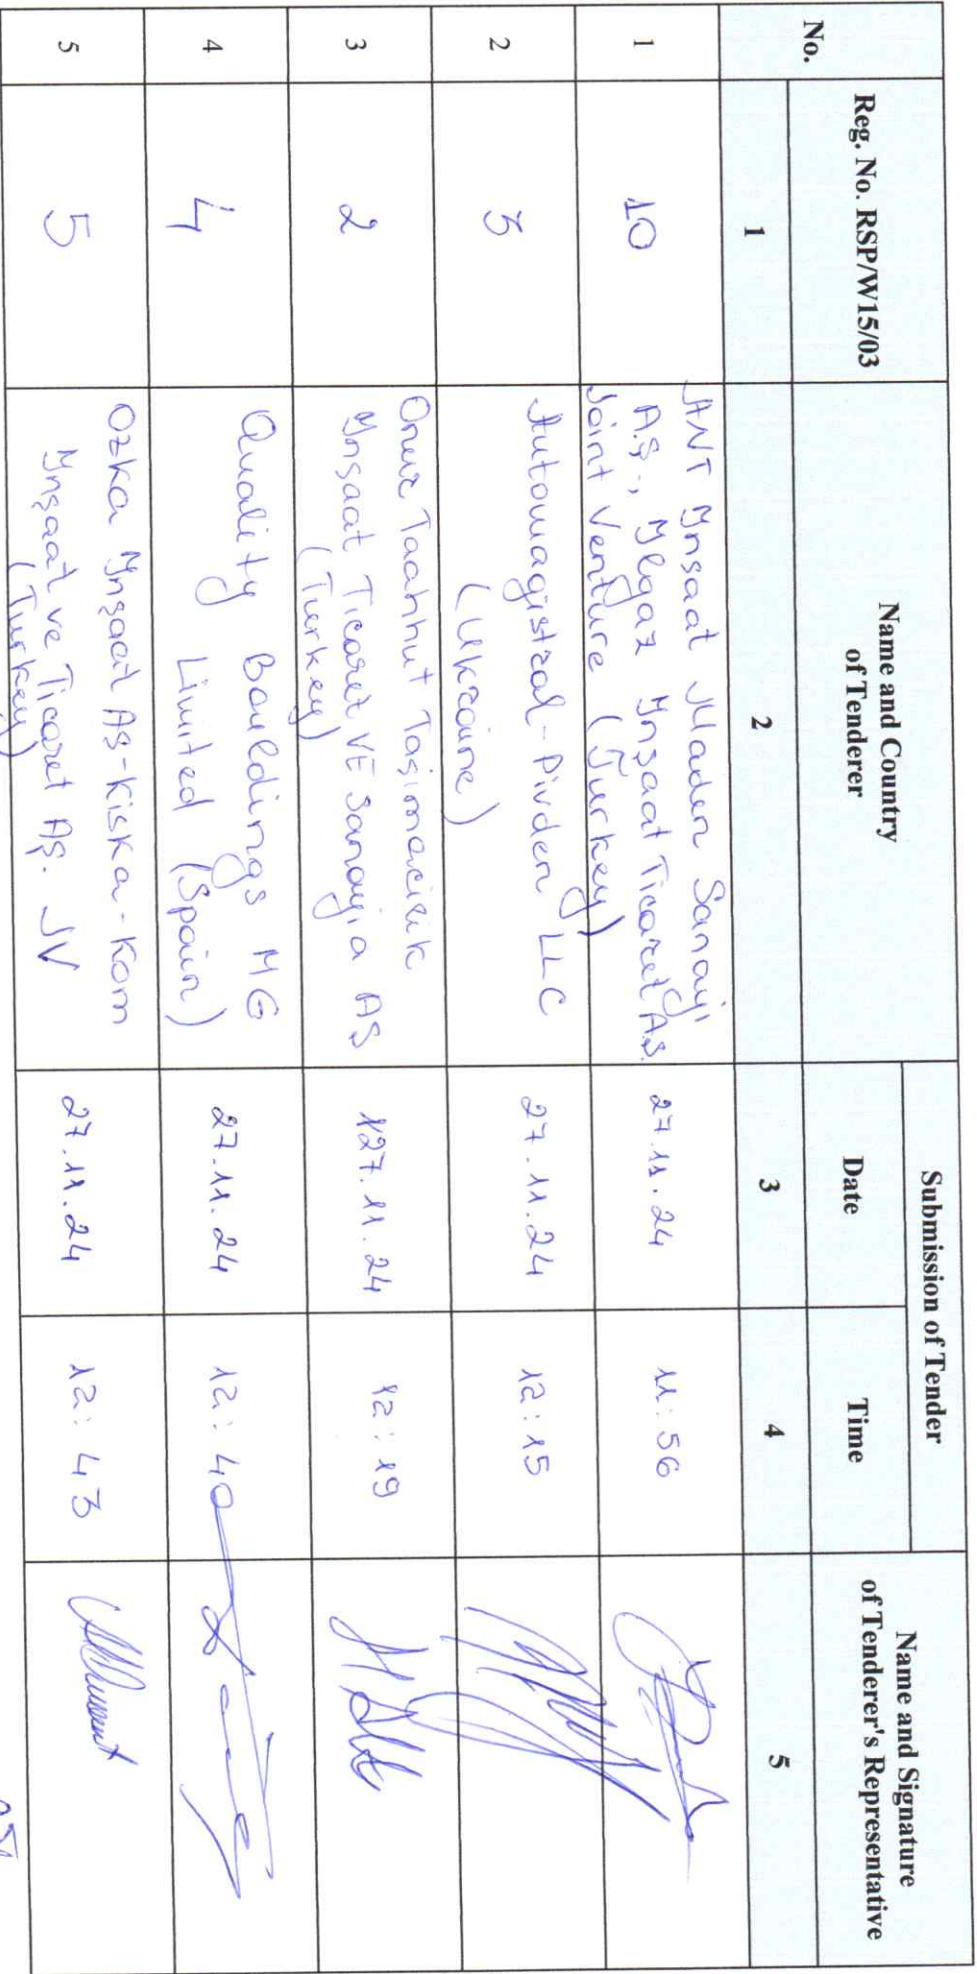 No.
Reg. No. RSP/W15/03
Name and Country
of Tenderer
Submission of Tender
Date
Time
Name and Signature
of Tenderer's Representative
1
2
3
4
5
1
10
ANT Ynsaat Maden Sanayi
A.Ş., Ylgaz Ynsaat Ticaret A.Ş.
Joint Venture (Turkey)
27.11.24
11:56
2
3
Automagistral-Pivden LLC
(Ukraine)
27.11.24
12:15
3
2
Onur Taahhut Taşimacilik
Ynşaat Ticaret VE Sanayi a AŞ
(Turkey)
27.11.24
12:19
4
4
Quality Bauldings MG
Limited (Spain)
27.11.24
12:40
5
5
Ozka Ynşaat AŞ-Kiska-Kom
Ynşaat ve Ticaret AŞ. JV
(Turkey)
27.11.24
12:43